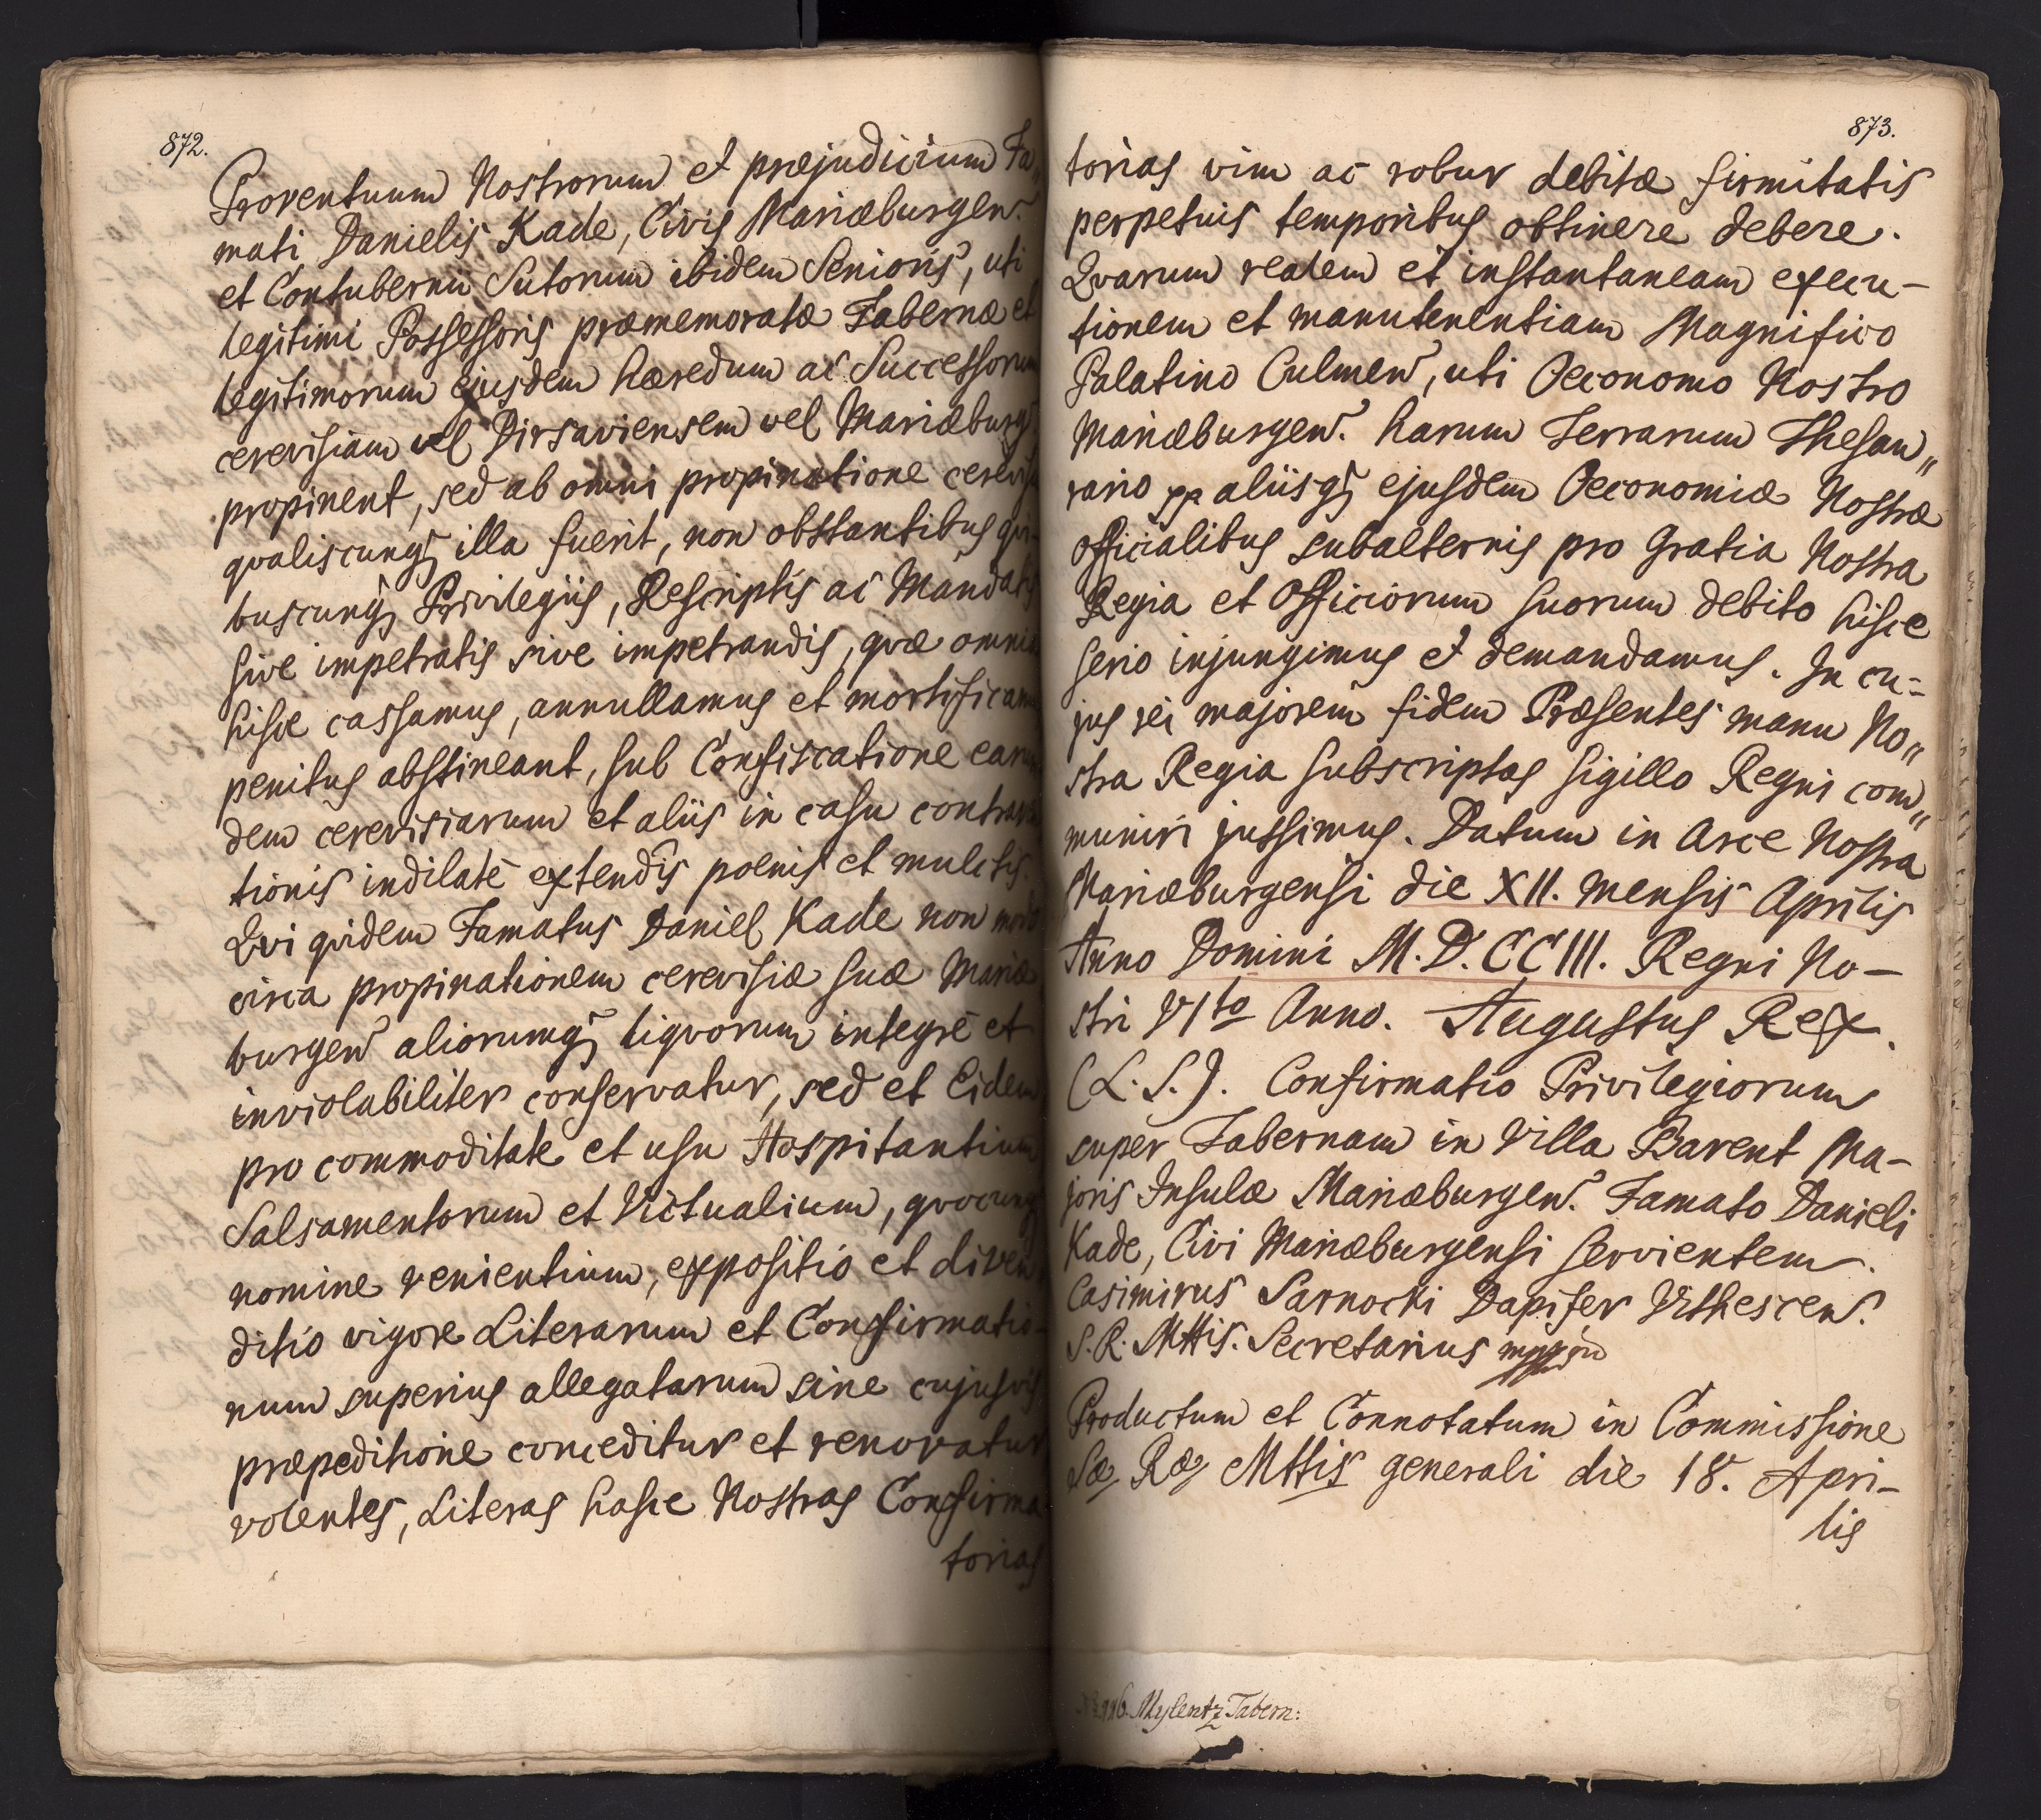 872.
Proventuum Nostrorum et præjudicium Fa„
mati Danielis Kade, Civis Mariæburgen.
et Contubernii Sutorum ibidem Senioris, uti
legitimi Possessoris præmemoratæ Tabernæ et
legitimorum ejusdem hæredum ac Successorum
cerevisiam vel Dirsaviensem vel Mariæburg
propinent, sed ab omni propinatione cerevisiæ
qvaliscunq illa fuerit, non obstantibus qvi-
buscunq Privilegiis, Rescriptis ac Mandatis
sive impetratis sive impetrandis, qvæ omnia
hisce cassamus, annullamus et mortificamus
penitus abstineant, sub Confiscatione earun
dem cerevisiarum et aliis in casu contraven
tionis indilatè extendis poenis et mulctis.
Qvi qvidem Famatus Daniel Kade non modo
circa propinationem cerevisiæ suæ Mariæ
burgen aliorumq liqvorum integrè et
inviolabiliter conservatur, sed et Eidem
pro commoditate et usu Hospitantium
Salsamentorum et Victualium, qvocunq
nomine venientium, expositio et diven
ditio vigore Literarum et Confirmatio-
num superius allegatarum sine cujusvis
præpeditione conceditur et renovatur
volentes, Literas hasce Nostras Confirma
torias
873.
torias vim ac robur debitæ firmitatis
perpetuis temporibus obtinere debere.
Qvarum realem et instantaneam execu-
tionem et manutenentiam Magnifico
Palatino Culmen, uti Oeconomo Nostro
Mariæburgen. harum Terrarum Thesau„
rario pp aliisq ejusdem Oeconomiæ Nostræ
Officialibus subalternis pro Gratia Nostra
Regia et Officiorum suorum debito hisce
serio injungimus et demandamus. In cu-
jus rei majorem fidem Præsentes manu No„
stra Regia subscriptas sigillo Regni com„
muniri jussimus. Datum in Arce Nostra
Mariæburgensi die XII. mensis Aprilis
Anno Domini M.D.CCIII. Regni No-
stri VIto Anno. Augustus Rex.
(L.S.). Confirmatio Privilegiorum
super Tabernam in Villa Barent Ma-
joris Insulæ Mariæburgen. Famato Danieli
Kade, Civi Mariæburgensi servientem.
Casimirus Sarnocki Dapifer Vithescen.
S.R. Mttis. Secretarius mpp
Productum et Connotatum in Commissione
Sæ Ræ Mttis generali die 18. Apri-
lis
Mylentz Tabern: